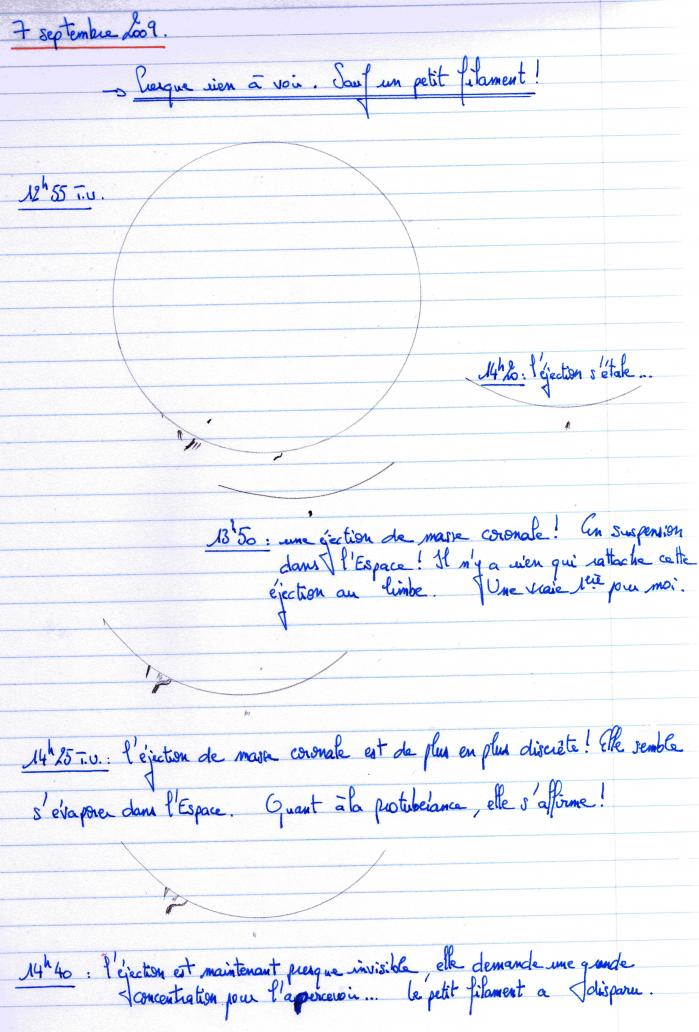 7 septembre 2009.
→ Presque rien à voir. Sauf un petit filament !
12h55 T.U.
14h20 : l'éjection s'étale...
13h50 : une éjection de masse coronale ! En suspension
dans l'Espace ! Il n'y a rien qui rattache cette
éjection au limbe. Une vraie 1ère pour moi.
14h25 T.U. : l'éjection de masse coronale est de plus en plus discrète ! Elle semble
s'évaporer dans l'Espace. Quant à la protubérance, elle s'affirme !
14h40 : l'éjection est maintenant presque invisible, elle demande une grande
concentration pour l'apercevoir... le petit filament a disparu.